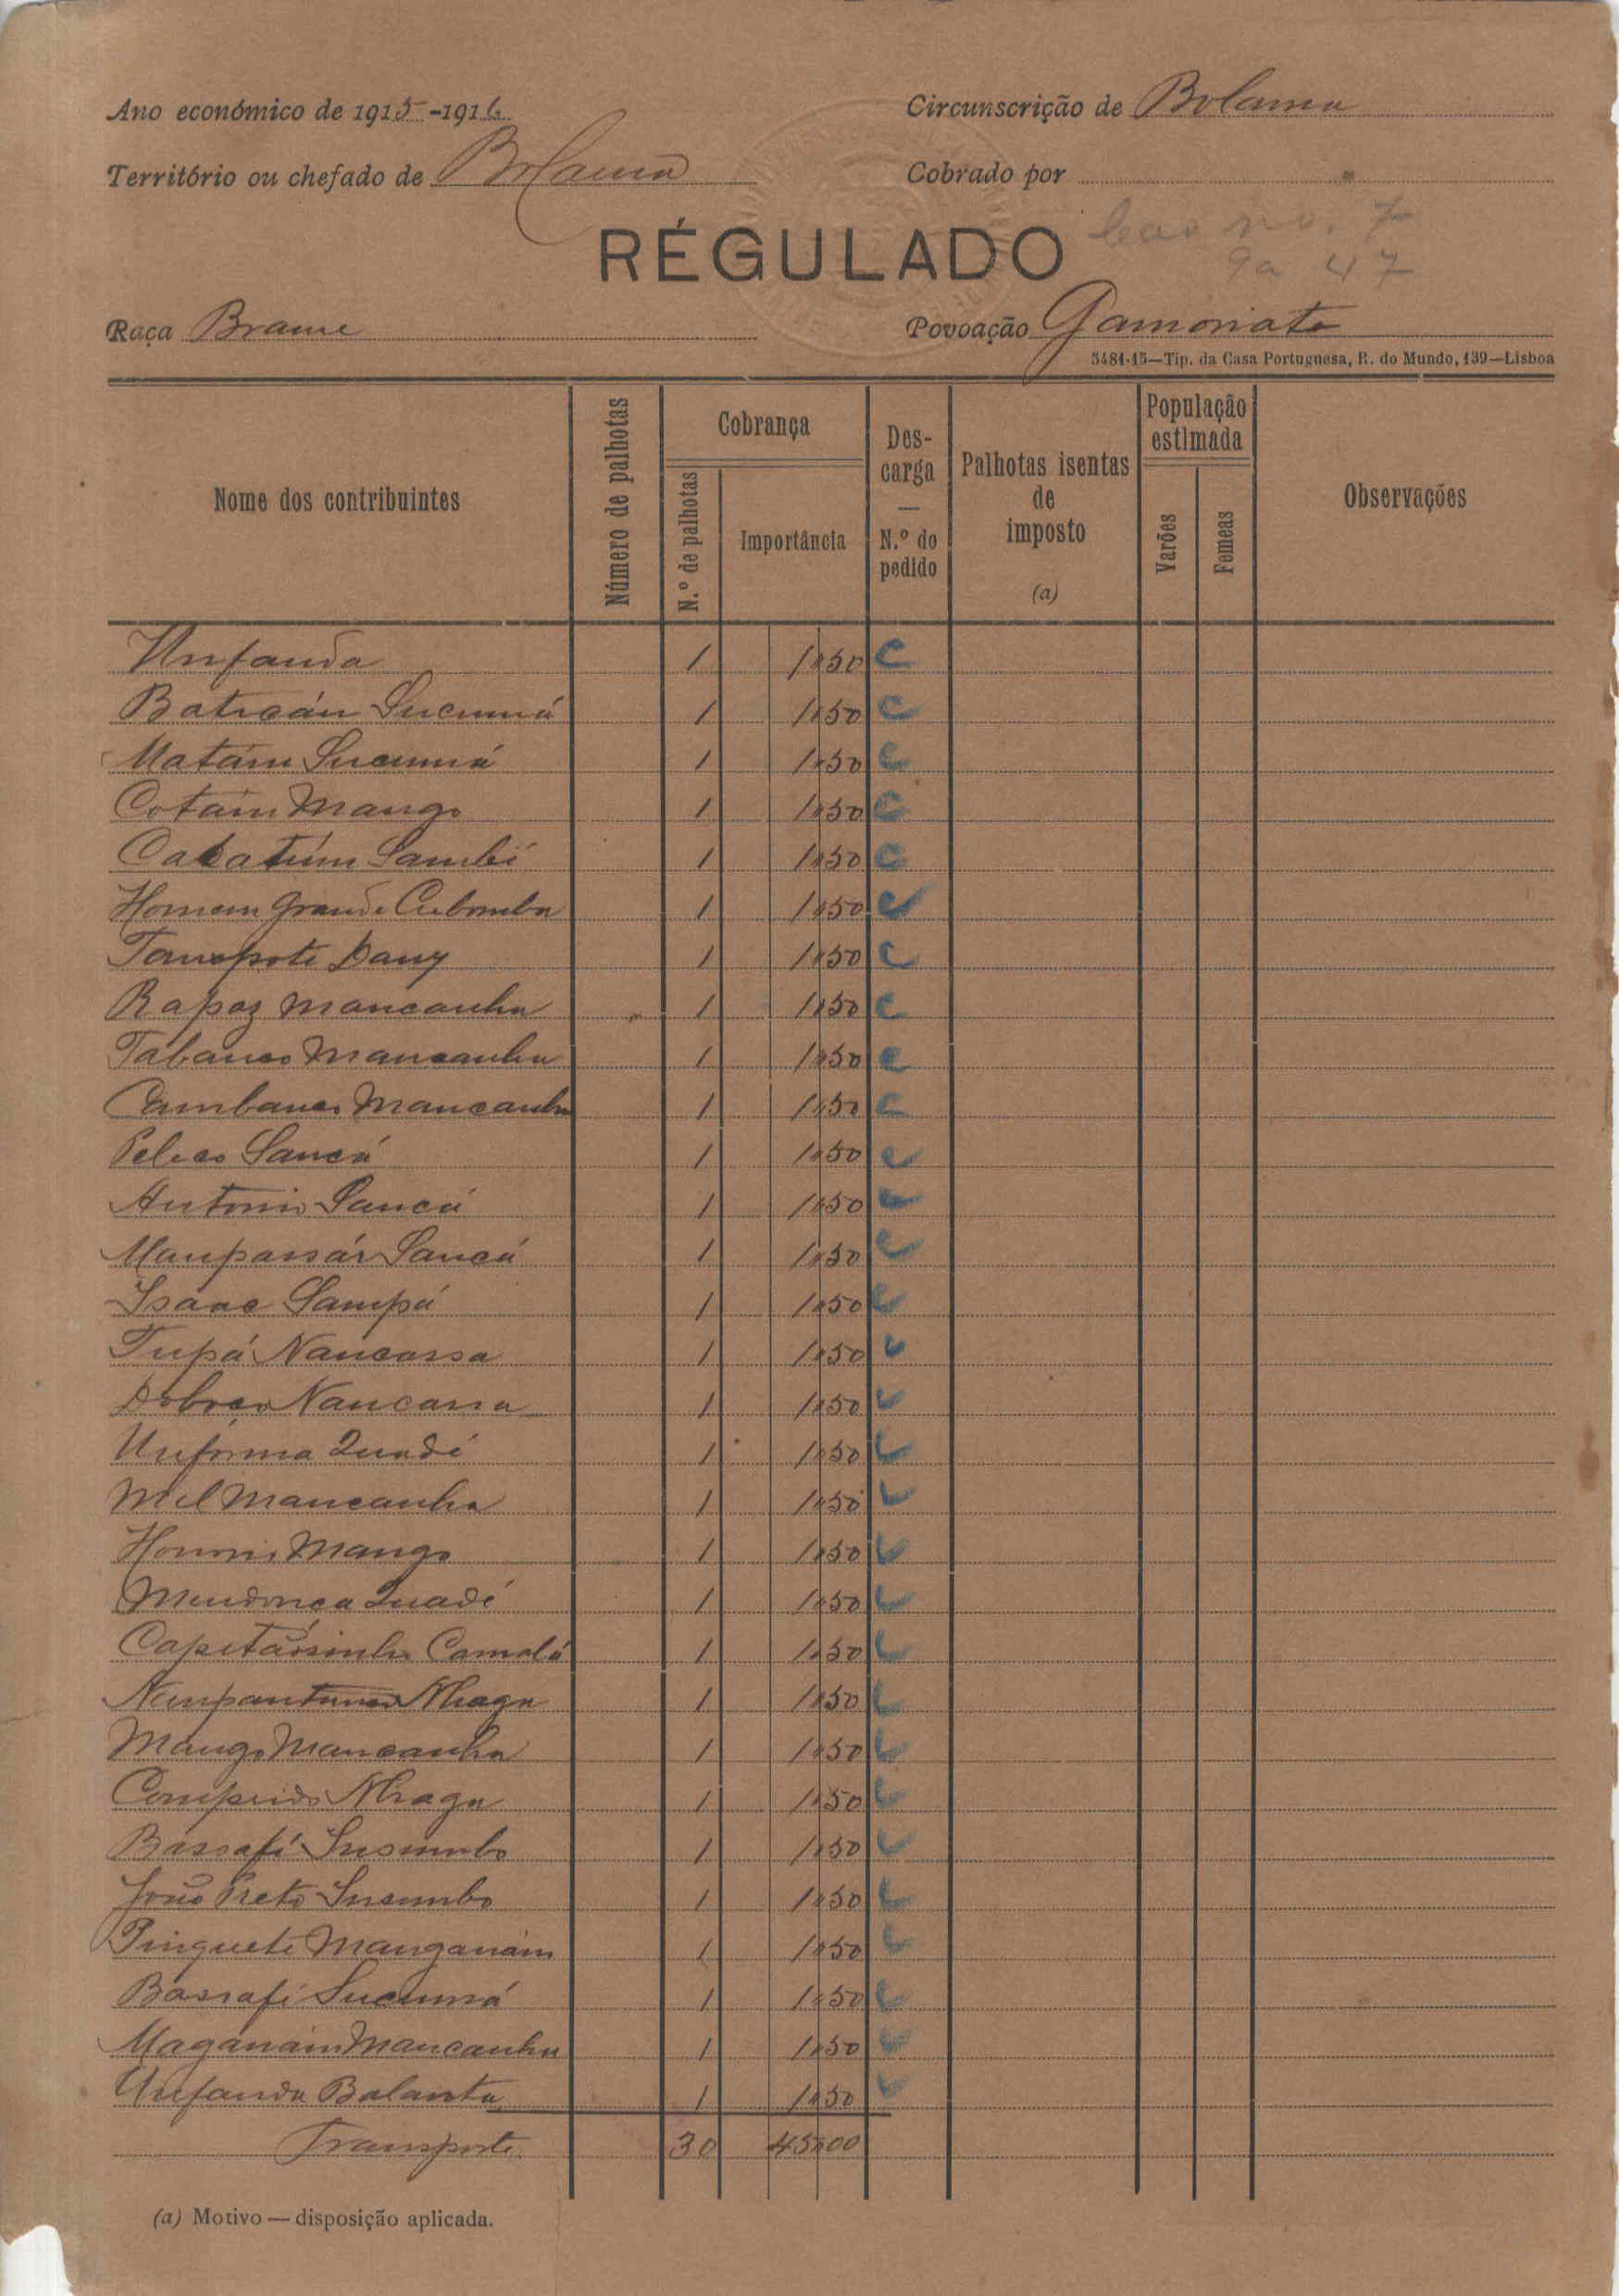 Ano económico de 1915-1916
Circunscrição de Bolama
Território ou chefado de Bolama
Cobrado por
RÉGULADO
no. 7
9a 47
Raça Brame
Povoação Gamoriato
5481-15—Tip. da Casa Portuguesa, R. do Mundo, 139—Lisboa
Nome dos contribuintes
Número de palhotas
Cobrança
N.º de palhotas
Importância
Descarga
—
N.º do pedido
Palhotas isentas de imposto
(a)
População estimada
Varões
Femeas
Observações
Unfanda 1 1$50 C
Baticán Sucumá 1 1$50 C
Matám Sucumá 1 1$50 C
Cotám Mango 1 1$50 C
Cabatúm Sambi 1 1$50 C
Homem Grande Cubomba 1 1$50 C
Dany 1 1$50 C
Rapaz Mancanha 1 1$50 C
Tabanco Mancanha 1 1$50 C
Cambanco Mancanha 1 1$50 C
Sancá 1 1$50 C
Antonio Sancá 1 1$50 C
Maupassár Sancá 1 1$50 C
Isaac Sampá 1 1$50 C
Tupá Nancassa 1 1$50 C
Nancassa 1 1$50 C
Unfórma Quadé 1 1$50 C
Mil Mancanha 1 1$50 C
Mango 1 1$50 C
Mendonça Quadé 1 1$50 C
Capitãosinho Camalá 1 1$50 C
Nhaga 1 1$50 C
Mango Mancanha 1 1$50 C
Comprido Nhaga 1 1$50 C
Bassafi Susumbo 1 1$50 C
João Preto Susumbo 1 1$50 C
Pinguete Manganám 1 1$50 C
Bassafi Sucumá 1 1$50 C
Maganám Mancanha 1 1$50 C
Unfanda Balanta 1 1$50 C
Transporte 30 45$00
(a) Motivo — disposição aplicada.